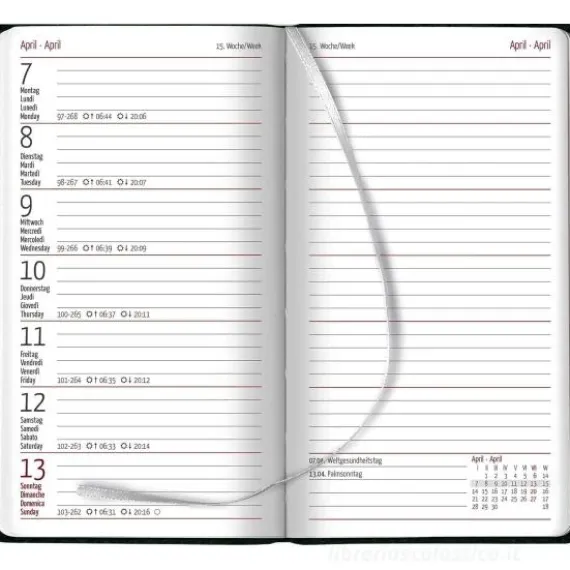 April - April
15. Woche/Week
7
Montag
Lundi
Lunedì
Monday
97-268 06:44 20:06
8
Dienstag
Mardi
Martedì
Tuesday
98-267 06:41 20:07
9
Mittwoch
Mercredi
Mercoledì
Wednesday
99-266 06:39 20:09
10
Donnerstag
Jeudi
Giovedì
Thursday
100-265 06:37 20:11
11
Freitag
Vendredi
Venerdì
Friday
101-264 06:35 20:12
12
Samstag
Samedi
Sabato
Saturday
102-263 06:33 20:14
13
Sonntag
Dimanche
Domenica
Sunday
103-262 06:31 20:16
15. Woche/Week
April - April
07.04. Weltgesundheitstag
13.04. Palmsonntag
April - April
1 2 3 4 5 6 14
7 8 9 10 11 12 13 15
14 15 16 17 18 19 20 16
21 22 23 24 25 26 27 17
28 29 30 18
libreriascolastica.it